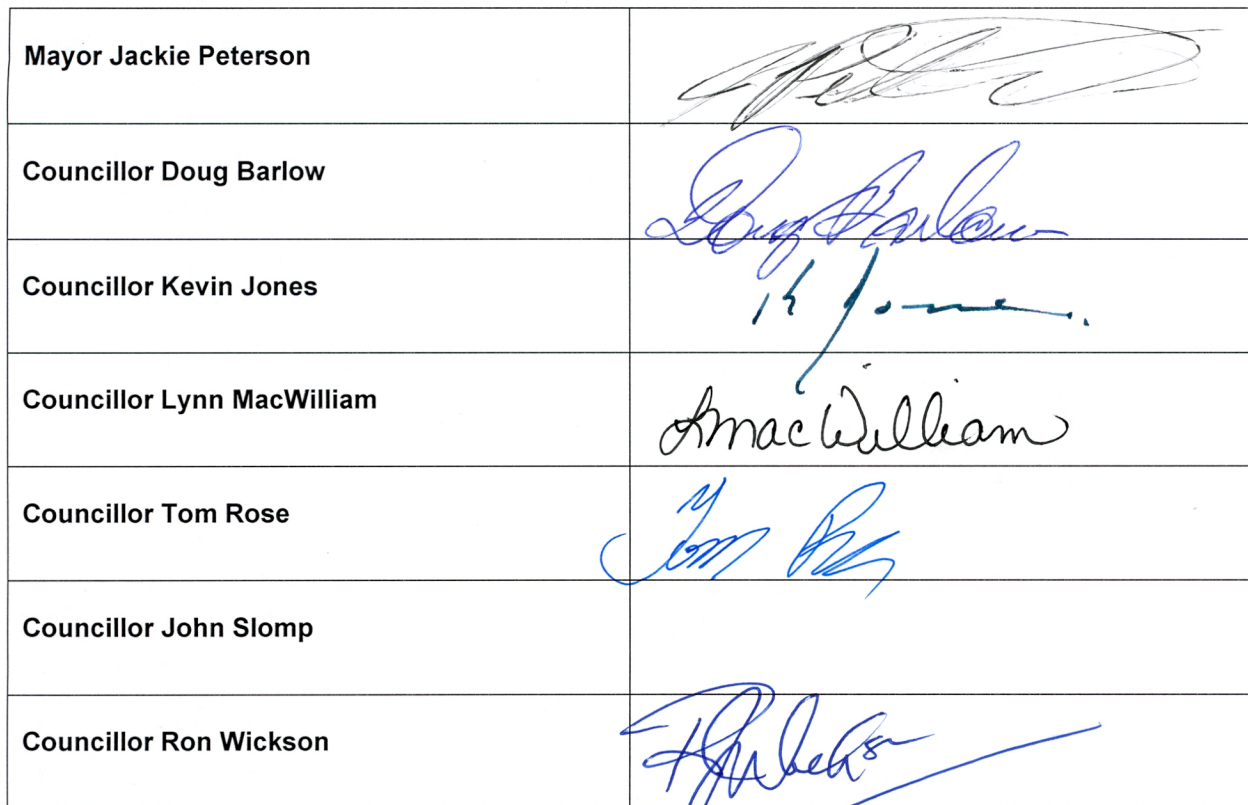 Mayor Jackie Peterson
Councillor Doug Barlow Doug Barlow
Councillor Kevin Jones K Jones.
Councillor Lynn MacWilliam LMacWilliam
Councillor Tom Rose Tom
Councillor John Slomp
Councillor Ron Wickson